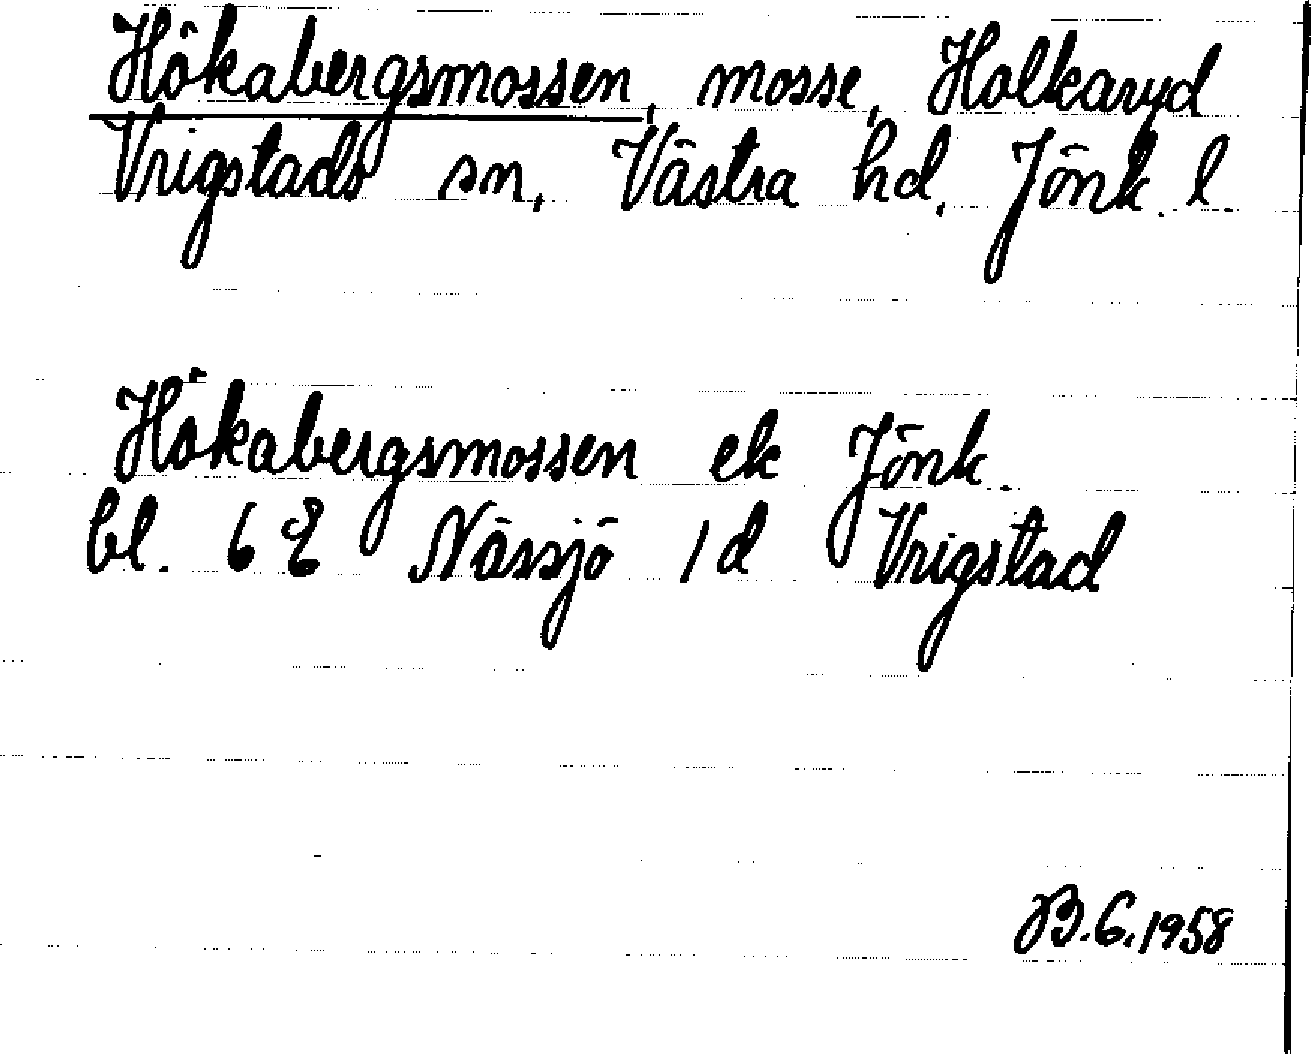 Hökabergsmossen, mosse, Holkaryd
Vrigstads sn, Västra hd, Jönk. l
Hökabergsmossen ek Jönk.
bl. 6 E Nässjö 1d Vrigstad
B.G. 1958